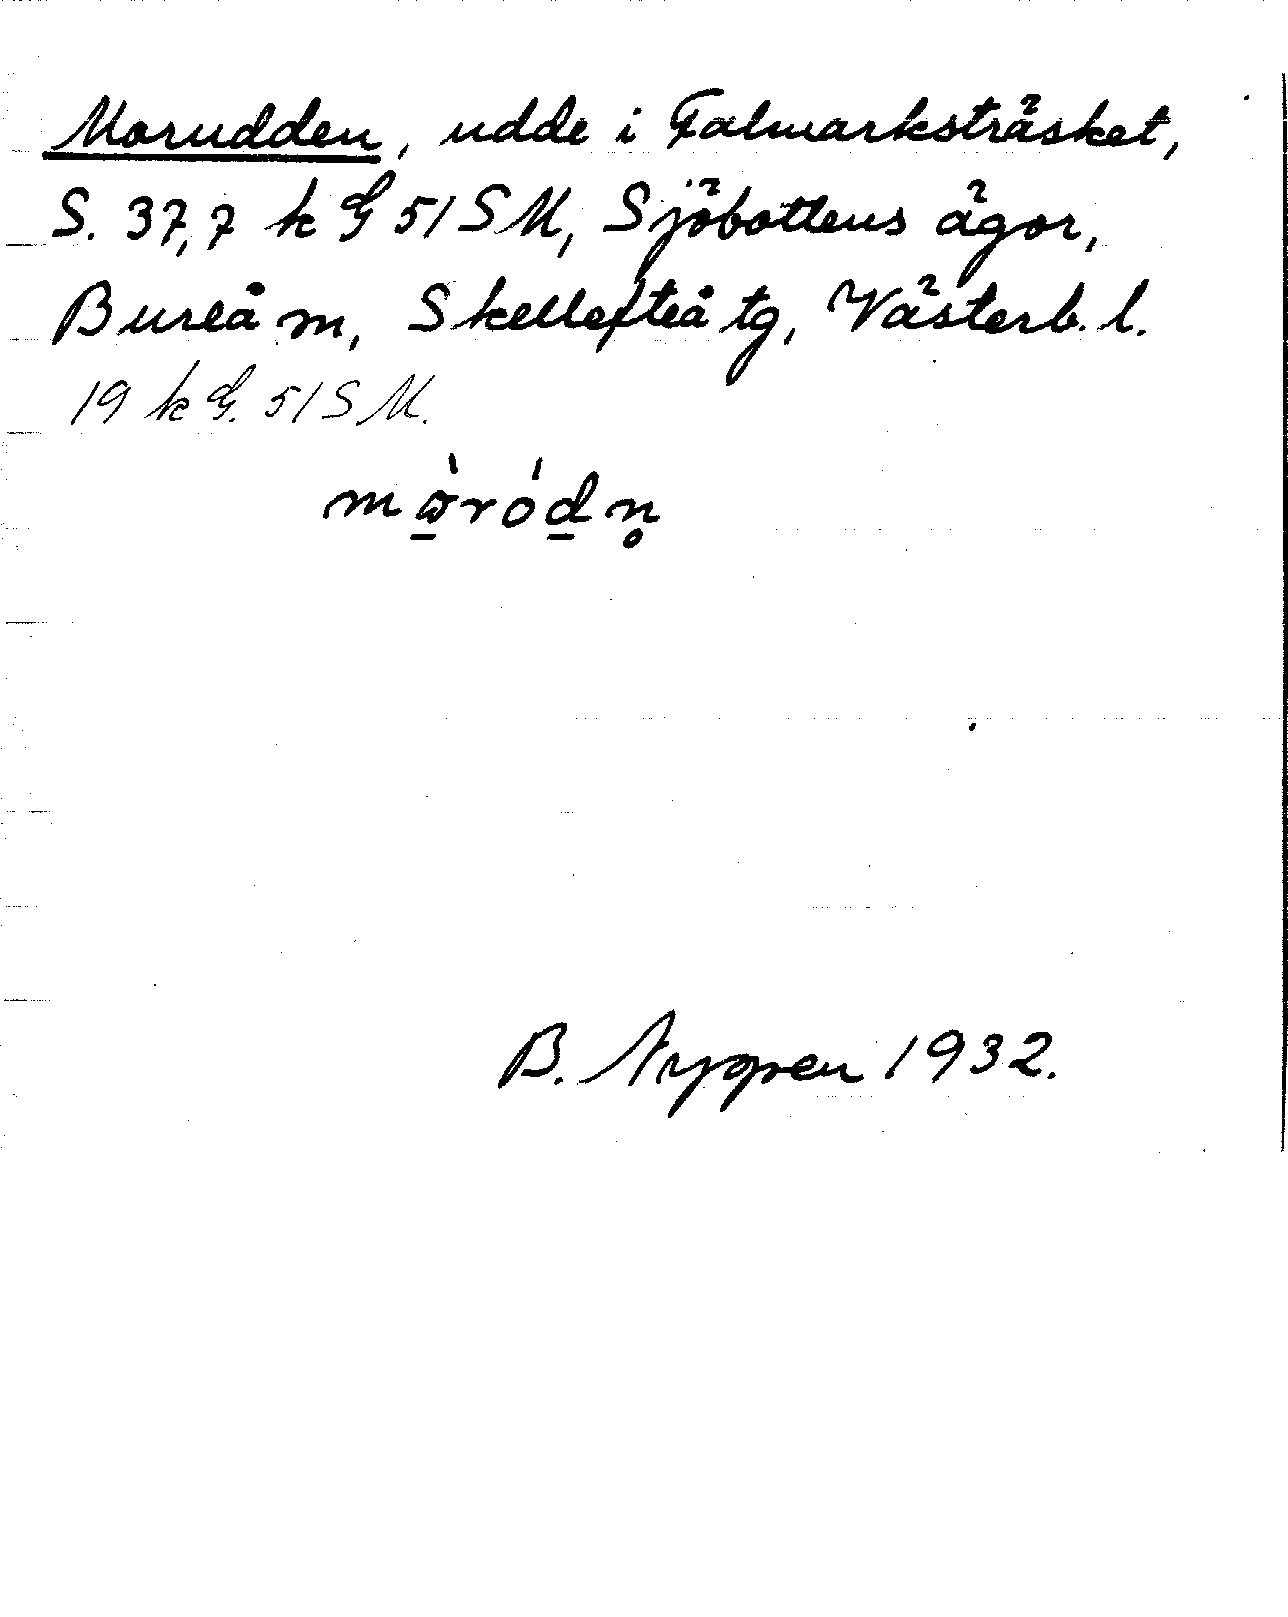 Morudden, udde i Falmarksträsket,
S. 37,7 k G 51 SM, Sjöbottens ägor,
Bureå m, Skellefteå tg, Västerb. l.
19 k G. 51 SM.
B. Nygren 1932.